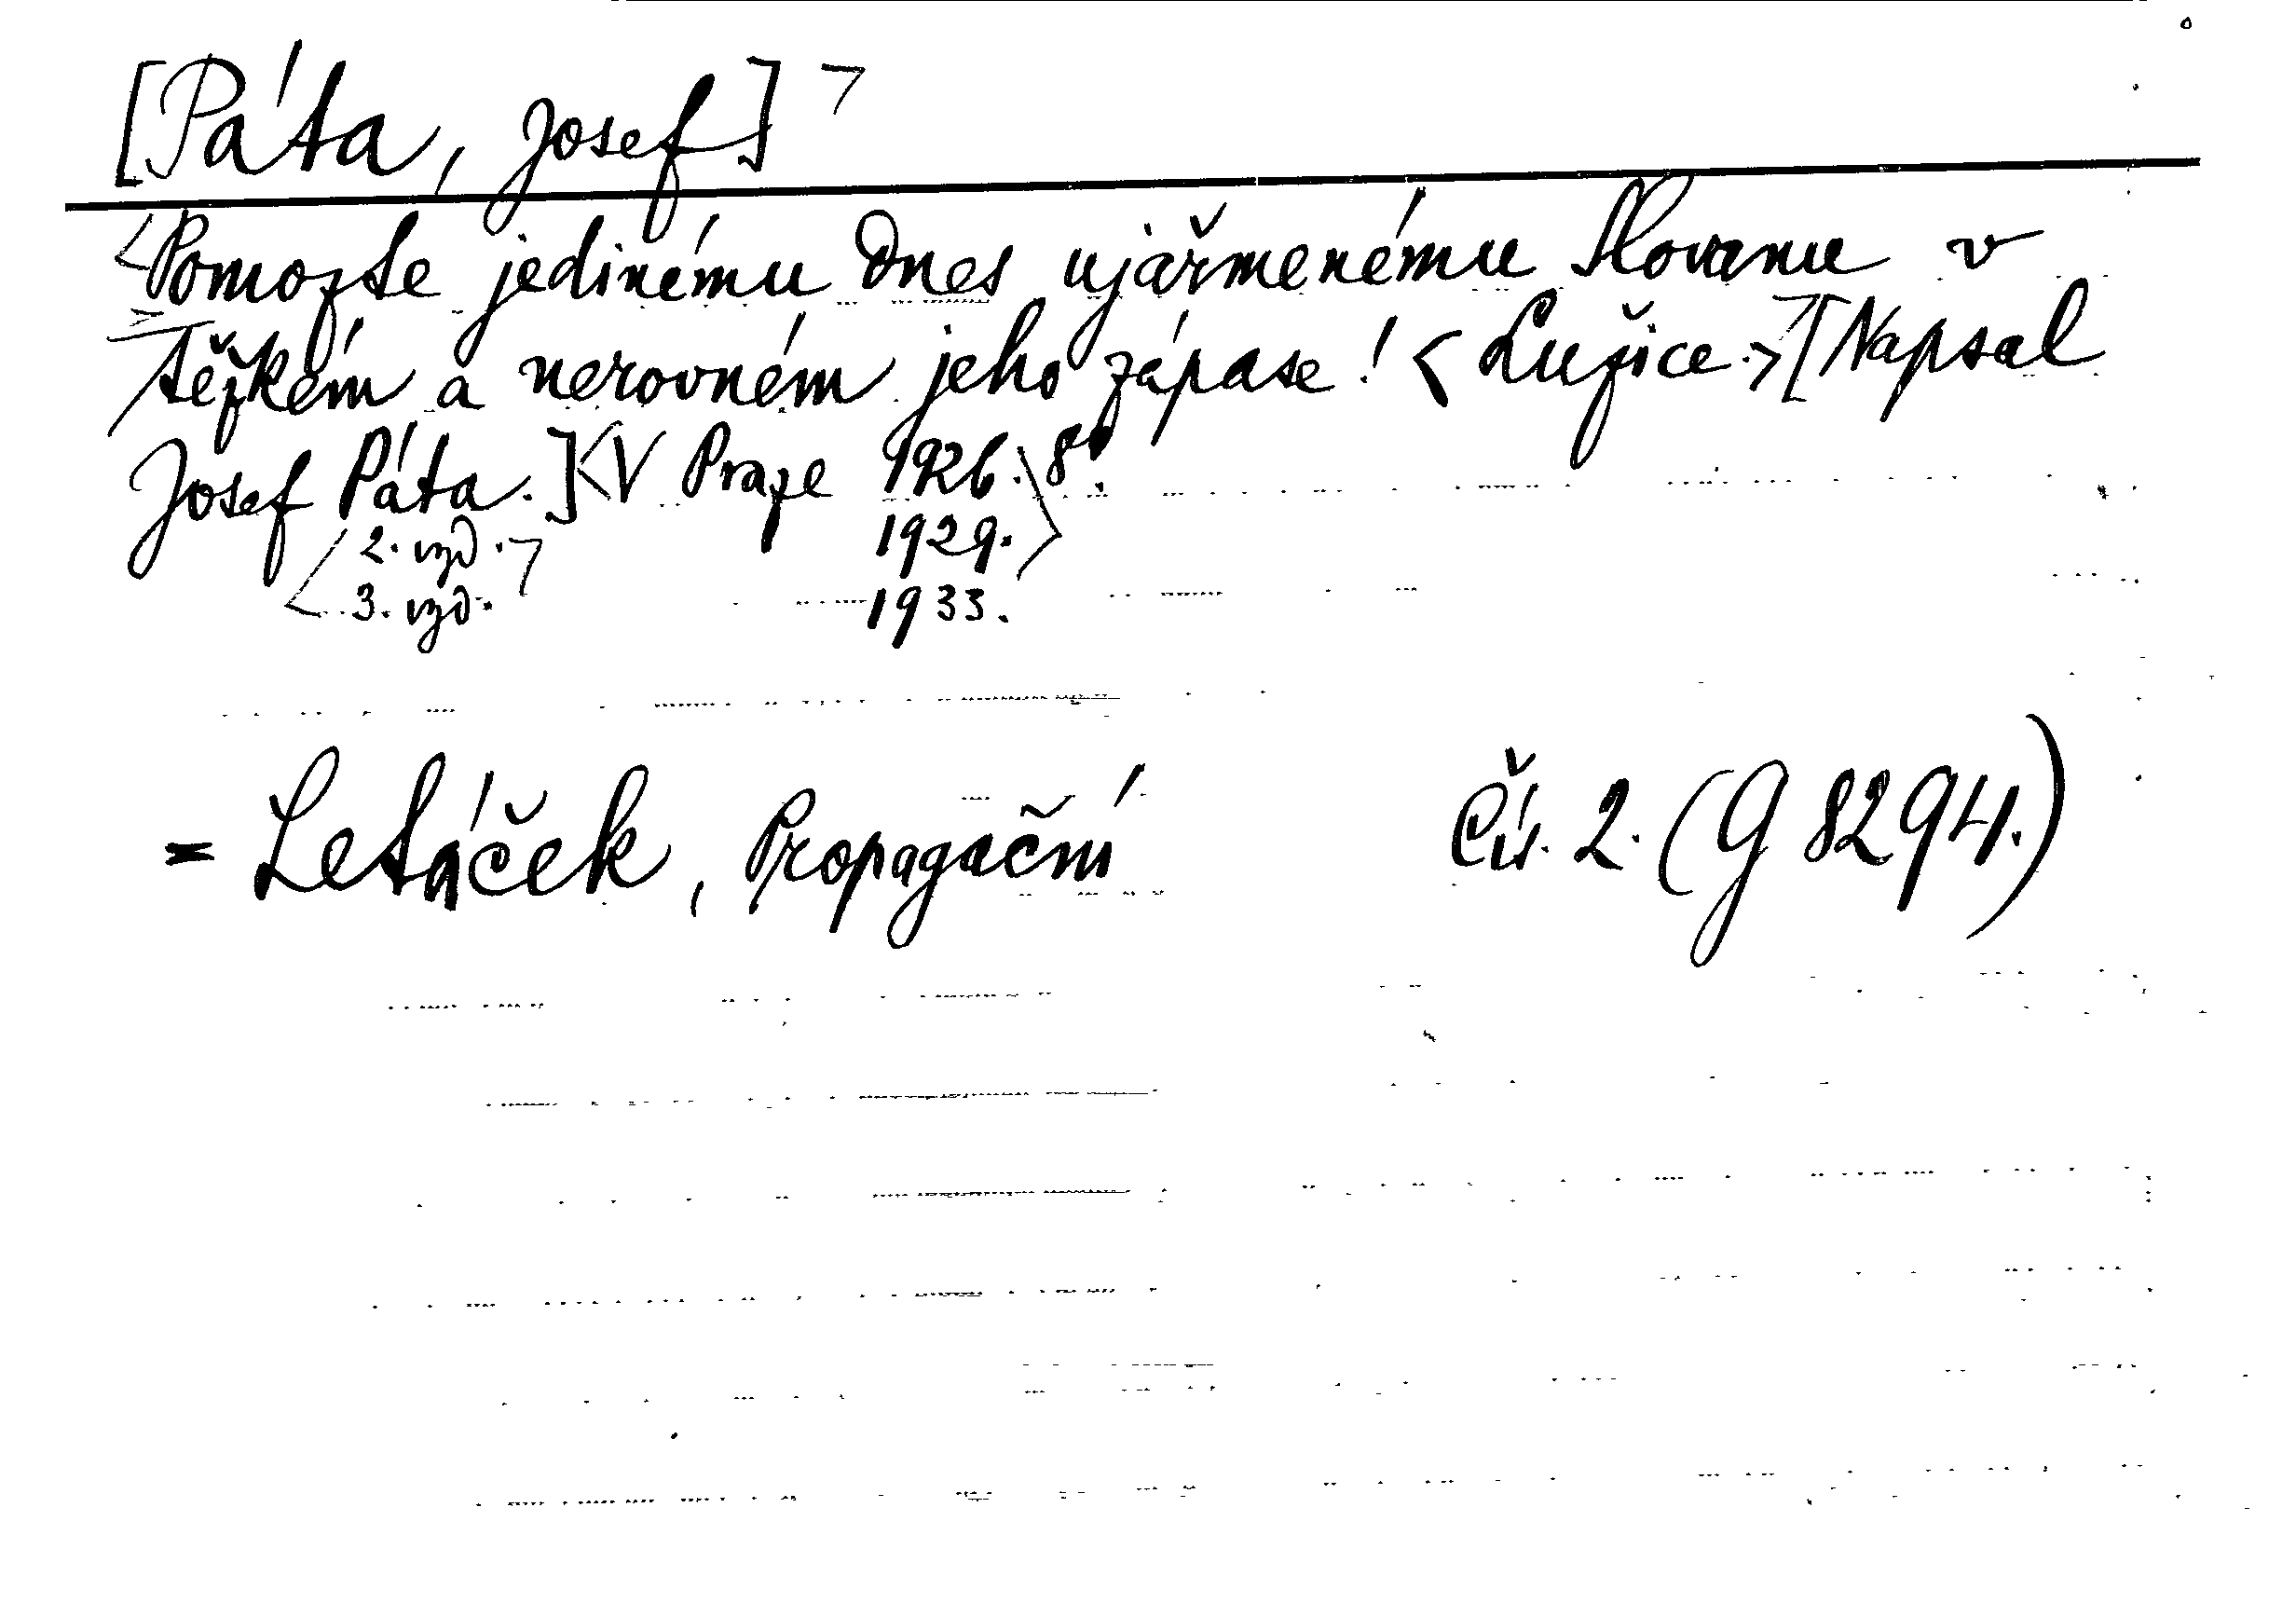 [Páta, Josef]
Pomozte jedinému dnes ujařmenému Slovanu v
těžkém a nerovném jeho zápase! <Lužice.> [Napsal
Josef Páta.] V Praze 1926. 8°.
2. vyd. 1929.
3. vyd. 1933.
= Letáček, Propagační Čís. 2. (G 8294.)